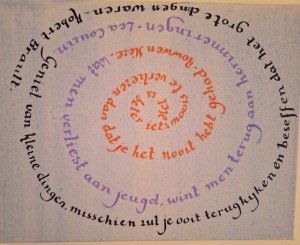 is beter iets moois te verliezen dan dat je het nooit hebt gehad. Rowwen Heze.
Wat men verliest aan jeugd, wint men terug aan herinneringen - Lea Couzin.
Geniet van kleine dingen, misschien zul je ooit terugkijken en beseffen dat het grote dingen waren. Robert Brault.